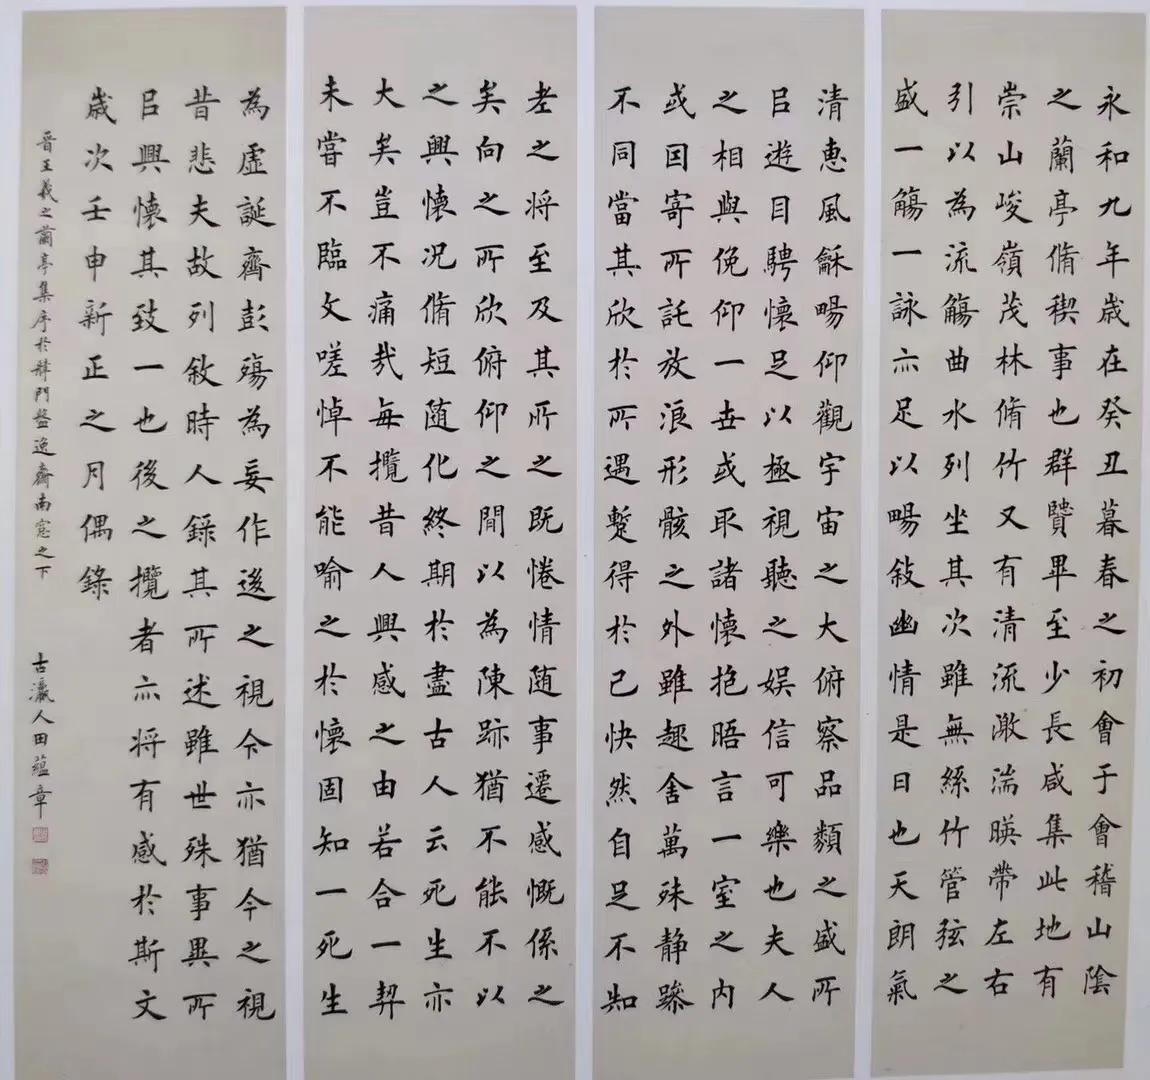 永和九年歲在癸丑暮春之初會于會稽山陰
之蘭亭脩稧事也群賢畢至少長咸集此地有
崇山峻嶺茂林脩竹又有清流激湍暎帶左右
引以為流觴曲水列坐其次雖無絲竹管弦之
盛一觴一詠亦足以暢敘幽情是日也天朗氣
清惠風龢暢仰觀宇宙之大俯察品類之盛所
㠯遊目騁懷足以極視聽之娛信可樂也夫人
之相與俛仰一世或取諸懷抱晤言一室之內
或因寄所託放浪形骸之外雖趣舍萬殊静躁
不同當其欣於所遇蹔得於己快然自足不知
老之将至及其所之既惓情随事遷感慨係之
矣向之所欣俯仰之間以為陳跡猶不能不以
之興懷况脩短随化終期於盡古人云死生亦
大矣豈不痛哉每攬昔人興感之由若合一契
未嘗不臨文嗟悼不能喻之於懷固知一死生
為虛誕齊彭殤為妄作後之視今亦猶今之視
昔悲夫故列敘時人錄其所述雖世殊事異所
㠯興懷其致一也後之攬者亦将有感於斯文
歲次壬申新正之月偶錄
晉王羲之蘭亭集序於門盤逸齋南窓之下 古瀛人田蘊章